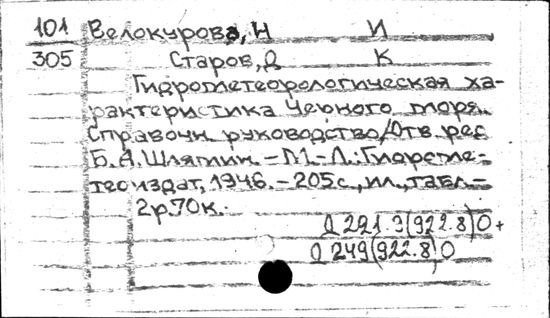 101 Белокурова, Н И
305 Старов, Д К
Гидрометеорологическая ха-
рактеристика Черного моря.
Справочн. руководство/Отв. ред
Б.А.Шлямин.-М.-Л.:Гидроме-
теоиздат, 1946.-205с., ил., табл.-
2р.70к.
Д 221.3(922.8)О+
Д 249(922.8)О